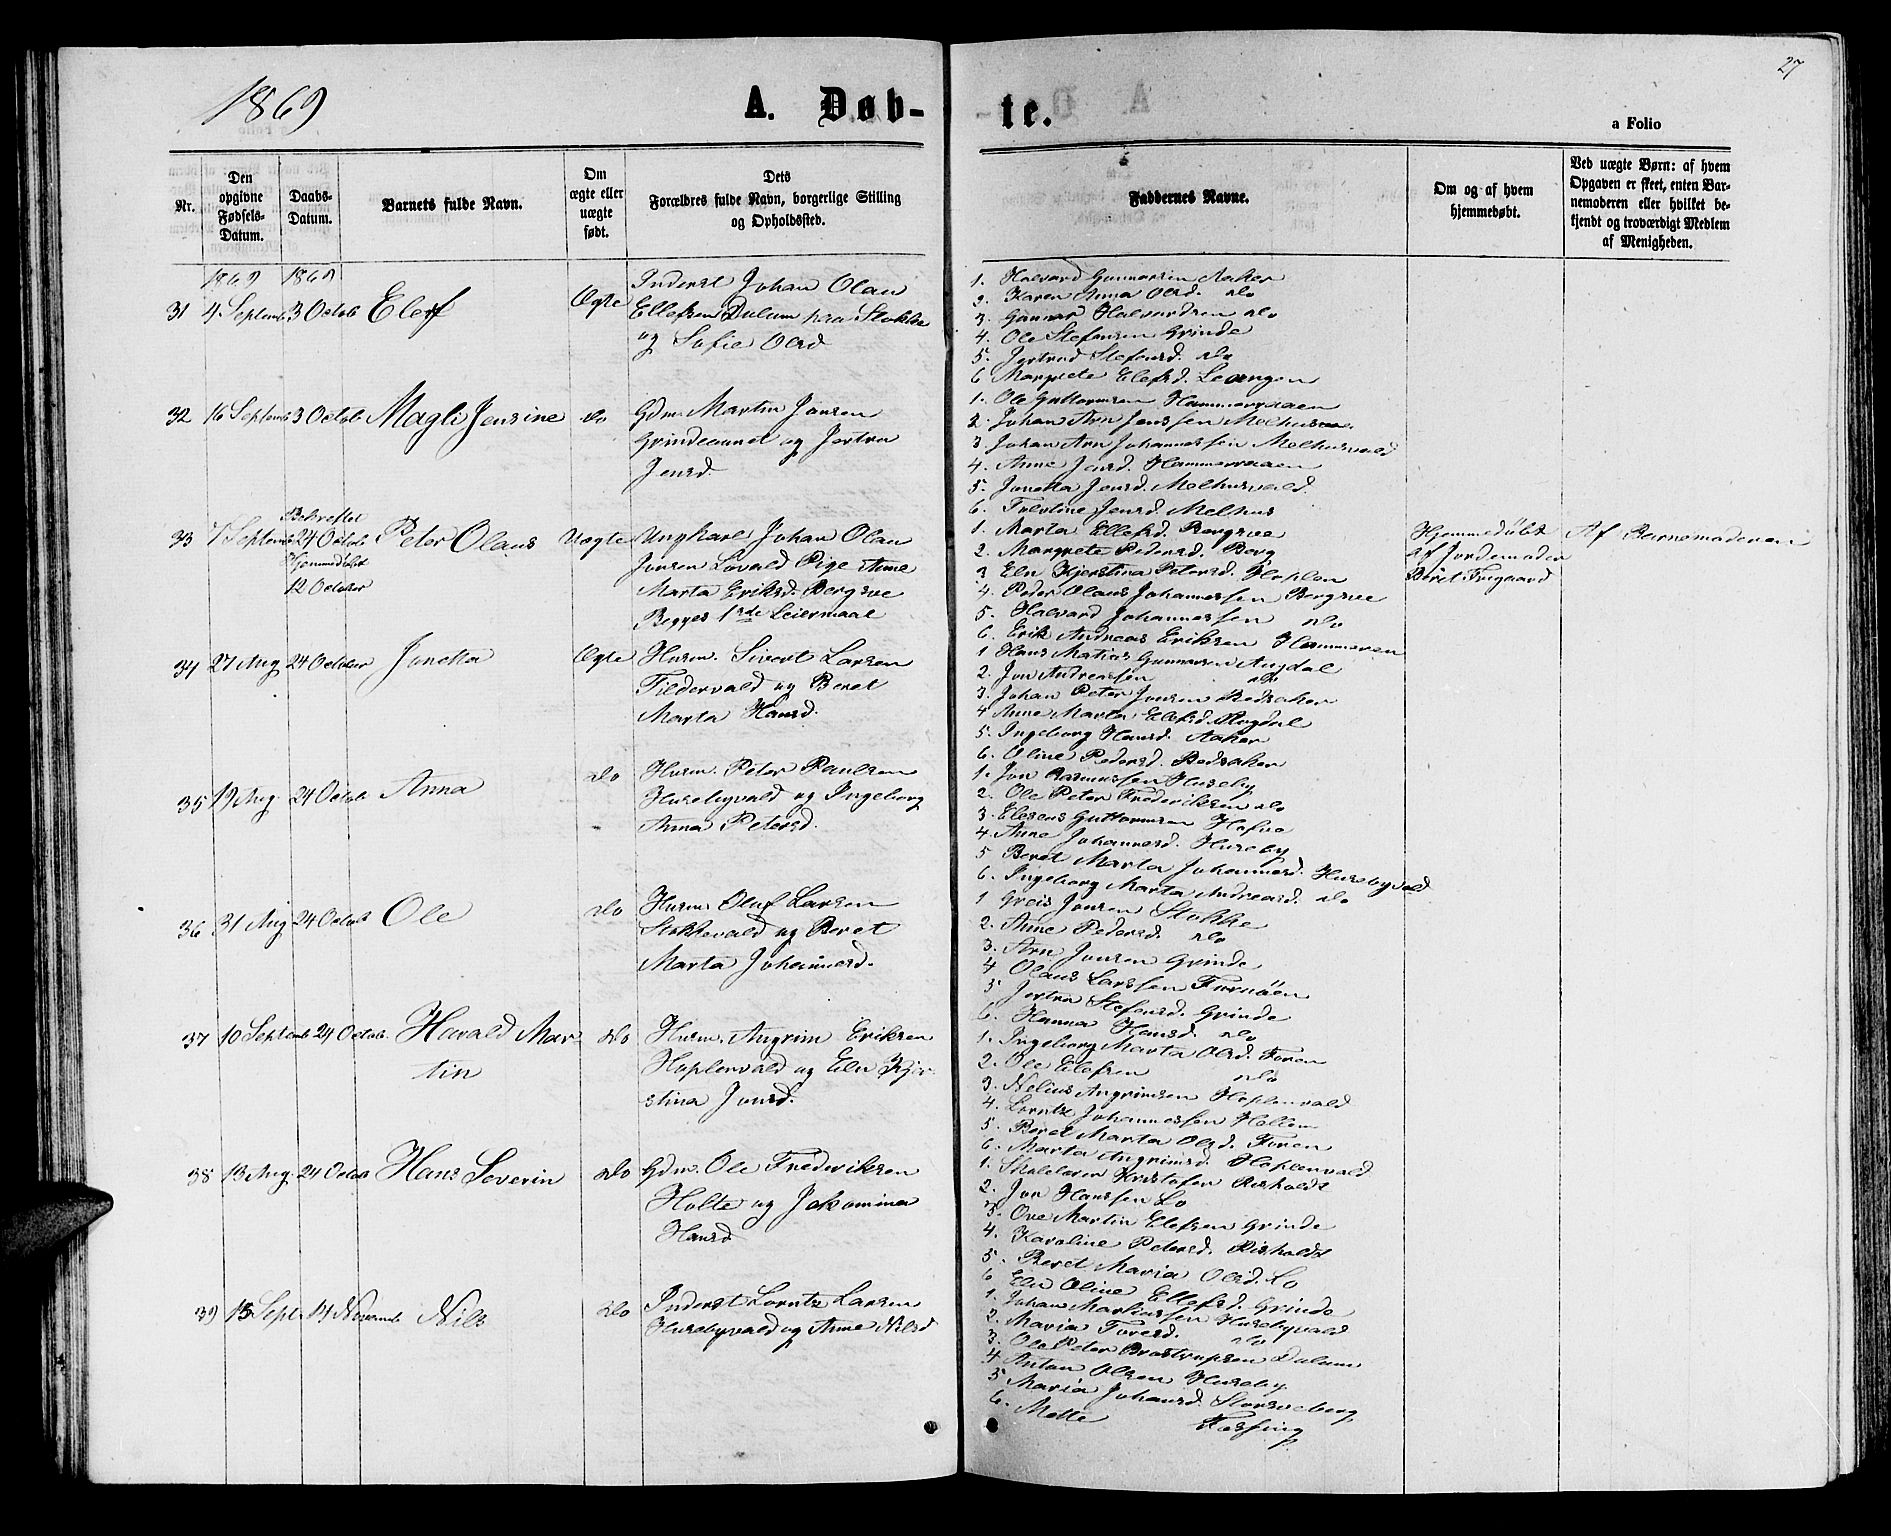 27
1869
A. Døb-
te.
a Folio
Nr.
Den
opgivne
Fødsels-
Datum.
Daabs-
Datum.
Barnets fulde Navn.
Om
ægte eller
uægte
født.
Dets
Forældres fulde Navn, borgerlige Stilling
og Opholdssted.
Faddernes Navne.
Om og af hvem
hjemmedøbt.
Ved uægte Børn: af hvem
Opgaven er skeet, enten Bar-
nemoderen eller hvilket be-
kjendt og troværdigt Medlem
af Menigheden.
1869 1869
31 4 Septemb 3 Octob Elef Ægte
Inderst Johan Olau
Ellefsen Dulum paa Stokke
og Sofie Olsd
1. Halvard Gunnarsen Aaker
2. Karen Anna Olsd. do
3. Gunnar Halvardsen do
4. Ole Stefansen Grinde
5. Jertrud Stefansd. do
6 Margrete Elefsd. Leangen
32 16 Septemb 3 Octob Magli Jensine do
Gdm. Martin Jonsen
Grindeaunet og Jertru
Jensd.
1. Ole Guttormsen
2. Johan Arn Jenssen Melhus
3. Johan Arn Johannessen Melhusvald
4. Anne Jensd.
5. Jonetta Jensd. Melhusvald
6. Jensd. Melhus
33 7 Septemb
Bekreftet
24 Octob
Hjemmedøbt
12 October
Peter Olaus Uægte
Ungkarl Johan Olau
Jonsen Lovald Pige Anne
Marta Eriksd. Bergsve
Begges 1ste Leiermaal
1. Marta Ellefsd. Bergsve
2. Margrete Pedersd. Berg
3 Eln Kjerstina Petersd. Hoplen
4. Peder Olaus Johannessen Bergsve
5. Halvard Johannessen do
6. Erik Andreas Eriksen Hammeren
Hjemmedøbt
af Jordemoder
Beret
Af Barnemoderen
34 27 Aug 24 October Jonetta Ægte
Husm. Sivert Larsen
Tildervald og Beret
Marta Hansd.
1 Hans Matias Gunnarsen Augdal
2. Jon Andreassen do
3. Johan Peter Jonsen Bedsaker
4 Anne Marta Elefsd. Augdal
5. Ingeborg Hansd. Aaker
6. Oline Pedersd. Bedsaker
35 19 Aug. 24 Octob Anna do
Husm. Peter Paulsen
Husebyvald og Ingeborg
Anna Petersd.
1. Jon Rasmussen Huseby
2. Ole Peter Frederiksen do
3. Eleseus Guttormsen
4. Anne Johannesd. Huseby
5 Beret Marta Johannesd. Husebyvald
6. Ingeborg Marta Andreasd. do
36 31 Aug 24 Octob Ole do
Husm. Oluf Larsen
Stokkevald og Beret
Marta Johannesd.
1 Greis Jonsen Stokke
2. Anne Pedersd. do
3. Arn Jonsen Grinde
4 Olaus Larssen
5 Jertru Stefansd. Grinde
6. Hanna Hansd. do
37 10 Septemb 24 Octob. Harald Mar-
tin
do
Husm. Angrim Eriksen
Hoplenvald og Eln Kjer-
stina Jonsd.
1. Ingeborg Marta Olsd. Foren
2. Ole Elefsen do
3. Nelius Angrimsen Hoplenvald
4. Lorntz Johannessen Hallem
5. Beret Marta Olsd. Foren
6. Marta Angrimsd. Hoplenvald
38 13 Aug. 24 Octob Hans Severin do
Gdm. Ole Frederiksen
Holte og Jakomina
Hansd
1. Skolelærer Kristofer Risholdt
2. Jon Hanssen Lo
3. Ove Martin Elefsen Grinde
4. Karoline Petersd. Risholdt
5. Beret Maria Olsd. Lo
6 Eln Oline Ellefsd. Grinde
39 15 Sept. 14 Novemb Nils do
Inderst Lorntz Larsen
Husebyvald og Anne Nilsd
1. Johan Martiussen Husebyvald
2. Maria Toresd. do
3. Ole Peter Brostrupsen Dulum
4 Anton Olsen Huseby
5 Maria Johansd. Storsveberg
6. Mette